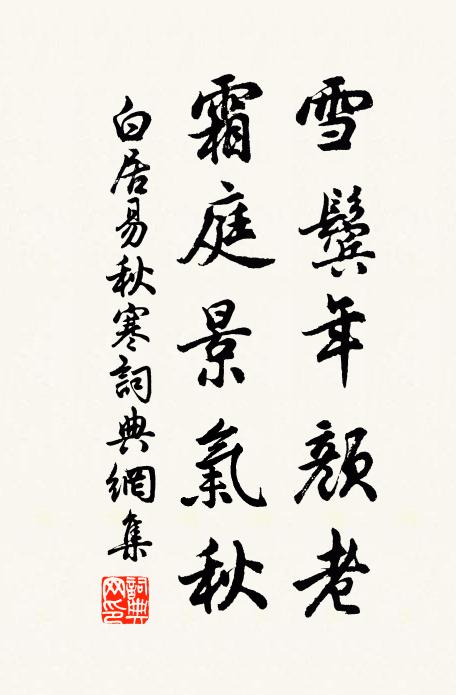 雪鬢年顏老
霜庭景氣秋
白居易秋寒詞典網集
詞典网印